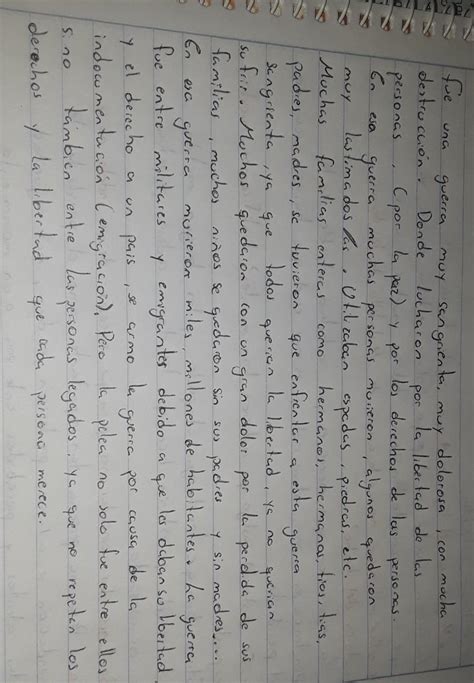 fue una guerra muy sangrienta, muy dolorosa, con mucha
destrucción. Donde lucharon por la libertad de las
personas, (por la paz) y por los derechos de las personas.
En esa guerra muchas personas murieron, algunos quedaron
muy lastimados/as. Utilizaban espadas, piedras, etc.
Muchas familias enteras como hermanos, hermanas, tios, tias,
padres, madres, se tuvieron que enfrentar a esta guerra
sangrienta, ya que todos querian la libertad, ya no querian
sufrir. Muchos quedaron con un gran dolor por la perdida de sus
familias, muchos niños se quedaron sin sus padres y sin madres....
En esa guerra murieron miles, millones de habitantes. La guerra
fue entre militares y emigrantes debido a que les daban su libertad
y el derecho a un pais, se armo la guerra por causa de la
indocumentación (emigración). Pero la pelea no solo fue entre ellos
sino también entre las personas legados, ya que no repetan los
derechos y la libertad que cada persona merece.